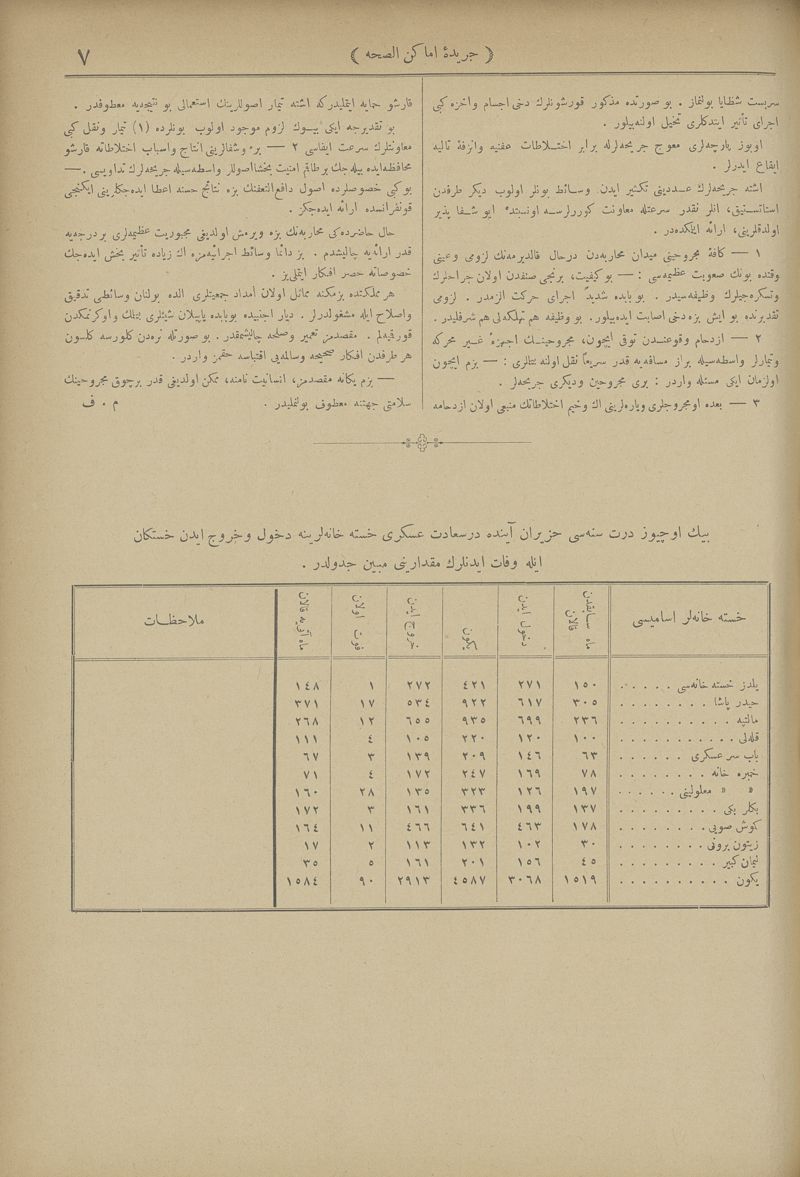 ﴿ جريدهٔ اماكن الصحه ﴾
٧
سربست شظايا بولنماز . بو صورتده مذكور قورشونلرك دخی اجسام واخزه كبی
اجرای تأثير ايتدكلری تخيل اولنه‌بيلور .
اوبوز پارچه‌لری معوج جريحه‌لرله برابر اختـلاطات عفنيه وانزفهٔ تاليه
ايقاع ايدرلر .
اشته جريحه‌لرك عـددينی تكثير ايدن وسـائط بونلر اولوب ديكر طرفدن
استاتسـتيق، انلر نقدر سرعتله معاونت كوررلرسـه اونسبتدە ايو شـفا پذير
اولدقلرينی، ارائه ايتمكده‌در .
١ — كافهٔ مجروحينی ميدان محاربه‌دن درحال قالديرمه‌نك لزومی وعينی
وقتده بونك صعوبت عظيمه‌سی : — بو كيفيت، برنجی صنفدن اولان جراحلرك
وتسكره‌جيلرك وظيفه‌سيدر . بو بابده شديداً اجرای حركت الزمدر . لزومی
تقديرنده بو ايش بزه دخی اصابت ايده‌بيلور. بو وظيفه هم تهلكه‌لی هم شرفليدر .
٢ — ازدحام وقوعنـدن توقی ايچون، مجروحينـك اجهزهٔ غـير محركه
وتيمارلر واسطه‌سيله براز مسافه‌يه قدر سريعاً نقل اولنه بيلملری : — بزم ايچون
اولزمان ايكی مسئله واردر : بری مجروحين وديكری جريحه‌لر .
٣ — بعده اومجروحلری وياره‌لرينی اك وخيم اختلاطاتك منبعی اولان ازدحامه
قارشو حمايه ايتمليدركه اشته تيمار اصوللرينك استعمالی بو نتيجه‌يه معطوفدر .
بو تقديرجه ايكی بيـوك لزوم موجود اولوب بونلرده (١) تيمار ونقل كبی
معاونتلرك سرعت ايفاسی ٢ — برء وشفالرينی انتاج واسباب اختلاطاته قارشو
محافظه‌ايده بيله‌جك برطاقم امنيت بخشااصوللر واسطه‌سيله جريحه‌لرك تداويسی . —
بو كبی خصوصلرده اصول دافع‌التعفنك بزه نتائج حسنه اعطا ايده‌جكلرينی ايكنجی
قونفرانسده ارائه ايده‌جكز .
حال حاضرده‌كی محاربه‌نك بزه ويرمش اولدينی مجبوريت عظيمه‌لری بر درجه‌يه
قدر ارائه‌يه چاليشدم . بز دائما وسائط اجرائيه‌مزه اك زياده تأثير بخش ايده‌جك
خصوصاته حصر افكار ايتملی‌يز .
هر مملكتده بزمكنه مماثل اولان امداد جمعيتلری الده بولنان وسائطی تدقيق
واصلاح ايله مشغولدرلر . ديار اجنبيه‌ده بوبابده ياپيلان شيئلری بيلمك واوكرنمكدن
قورقيه‌لم . مقصدمز تعمير وصلحه چاليشمقدر . بو صورتله نره‌دن كلورسه كلسون
هر طرفدن افكار صحيحه وسالمه‌يی اقتباسه حقمز واردر .
— بزم يكانه مقصدمز، انسانيت نامنه، ممكن اولدينی قدر برچوق مجروحينك
سلامتی جهتنه معطوف بولنمليدر . م . ف
بيك اوچيوز درت سنه‌سی حزيران آينده درسعادت عسكری خسته خانه‌لرينه دخول وخروج ايدن خستكان
ايله وفات ايدنلرك مقدارينی مبين جدولدر .
خسته خانه‌لر اساميسی ماه سابقدن قالان دخول ايدن يكون خروج ايدن فوت اولان ماه آتی‌يه قالان ملاحظات
يلدز خسته خانه‌سی . . . . . ١٥٠ ٢٧١ ٤٢١ ٢٧٢ ١ ١٤٨
حيدر پاشا . . . . . . . . ٣٠٥ ٦١٧ ٩٢٢ ٥٣٤ ١٧ ٣٧١
مالتپه . . . . . . . . . . ٢٣٦ ٦٩٩ ٩٣٥ ٦٥٥ ١٢ ٢٦٨
قله‌لی . . . . . . . . . . . ١٠٠ ١٢٠ ٢٢٠ ١٠٥ ٤ ١١١
باب سر عسكری . . . . . . ٦٣ ١٤٦ ٢٠٩ ١٣٩ ٣ ٦٧
خمبره خانه . . . . . . . . ٧٨ ١٦٩ ٢٤٧ ١٧٢ ٤ ٧١
» » معلولينی . . . . . . ١٩٧ ١٢٦ ٣٢٣ ١٣٥ ٢٨ ١٦٠
بكلر بكی . . . . . . . . . ١٣٧ ١٩٩ ٣٣٦ ١٦١ ٣ ١٧٢
كموش صويی . . . . . . . . ١٧٨ ٤٦٣ ٦٤١ ٤٦٦ ١١ ١٦٤
زيتون برونی . . . . . . . . ٣٠ ١٠٢ ١٣٢ ١١٣ ٢ ١٧
ليمان كبير . . . . . . . . . ٤٥ ١٥٦ ٢٠١ ١٦١ ٥ ٣٥
يكون . . . . . . . . . . ١٥١٩ ٣٠٦٨ ٤٥٨٧ ٢٩١٣ ٩٠ ١٥٨٤